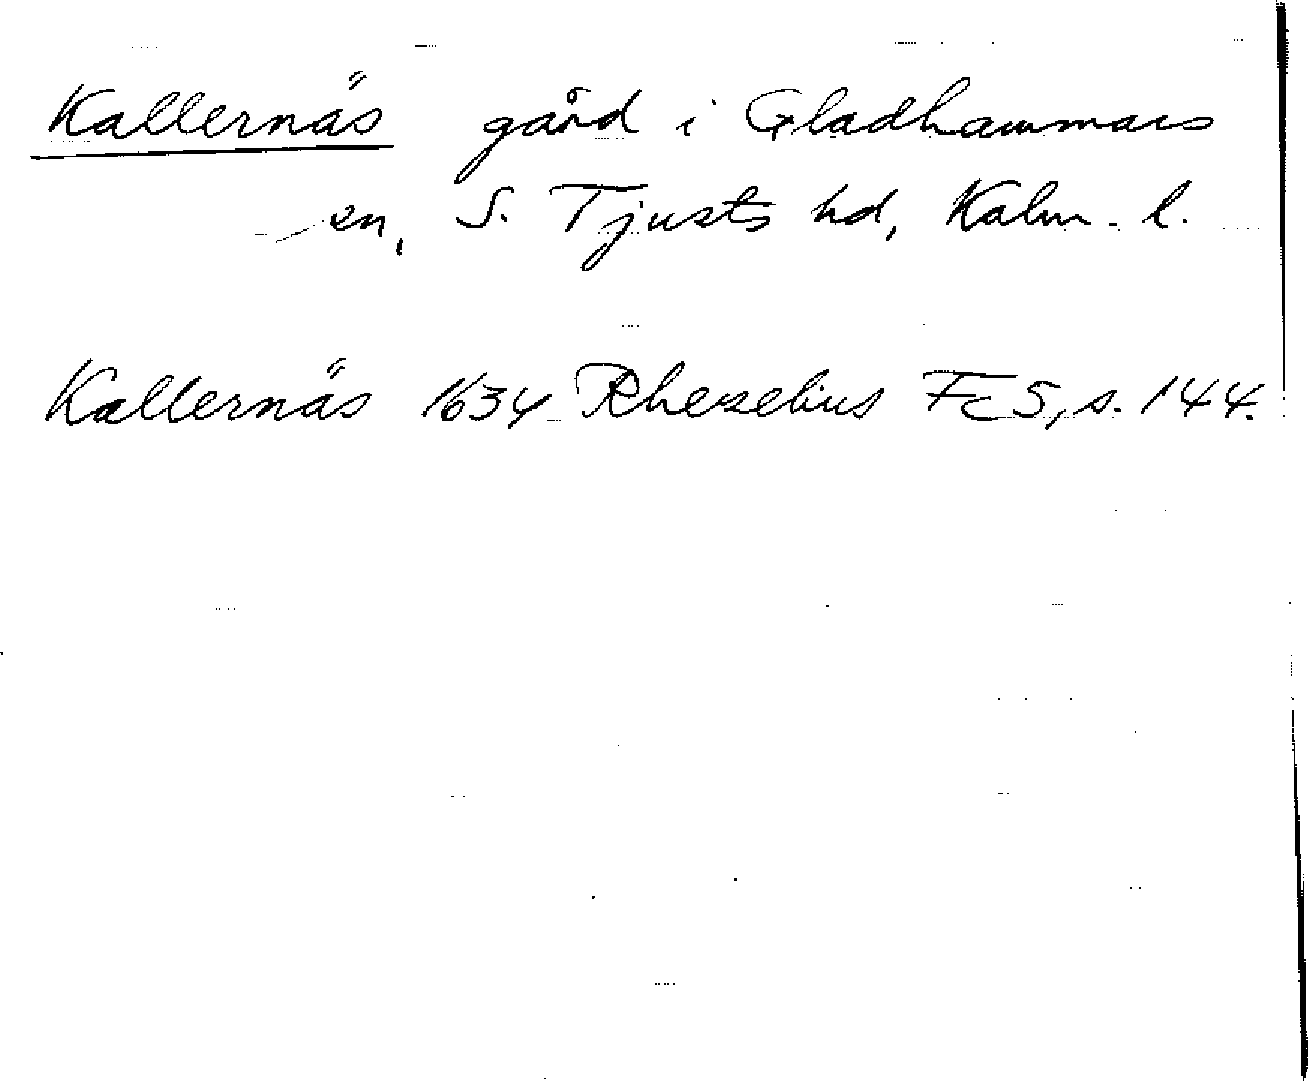 Kallernäs gård i Gladhammars
sn, S. Tjusts hd, Kalm. l.
Kallernäs 1634 Rhezelius Fc5, s. 144.